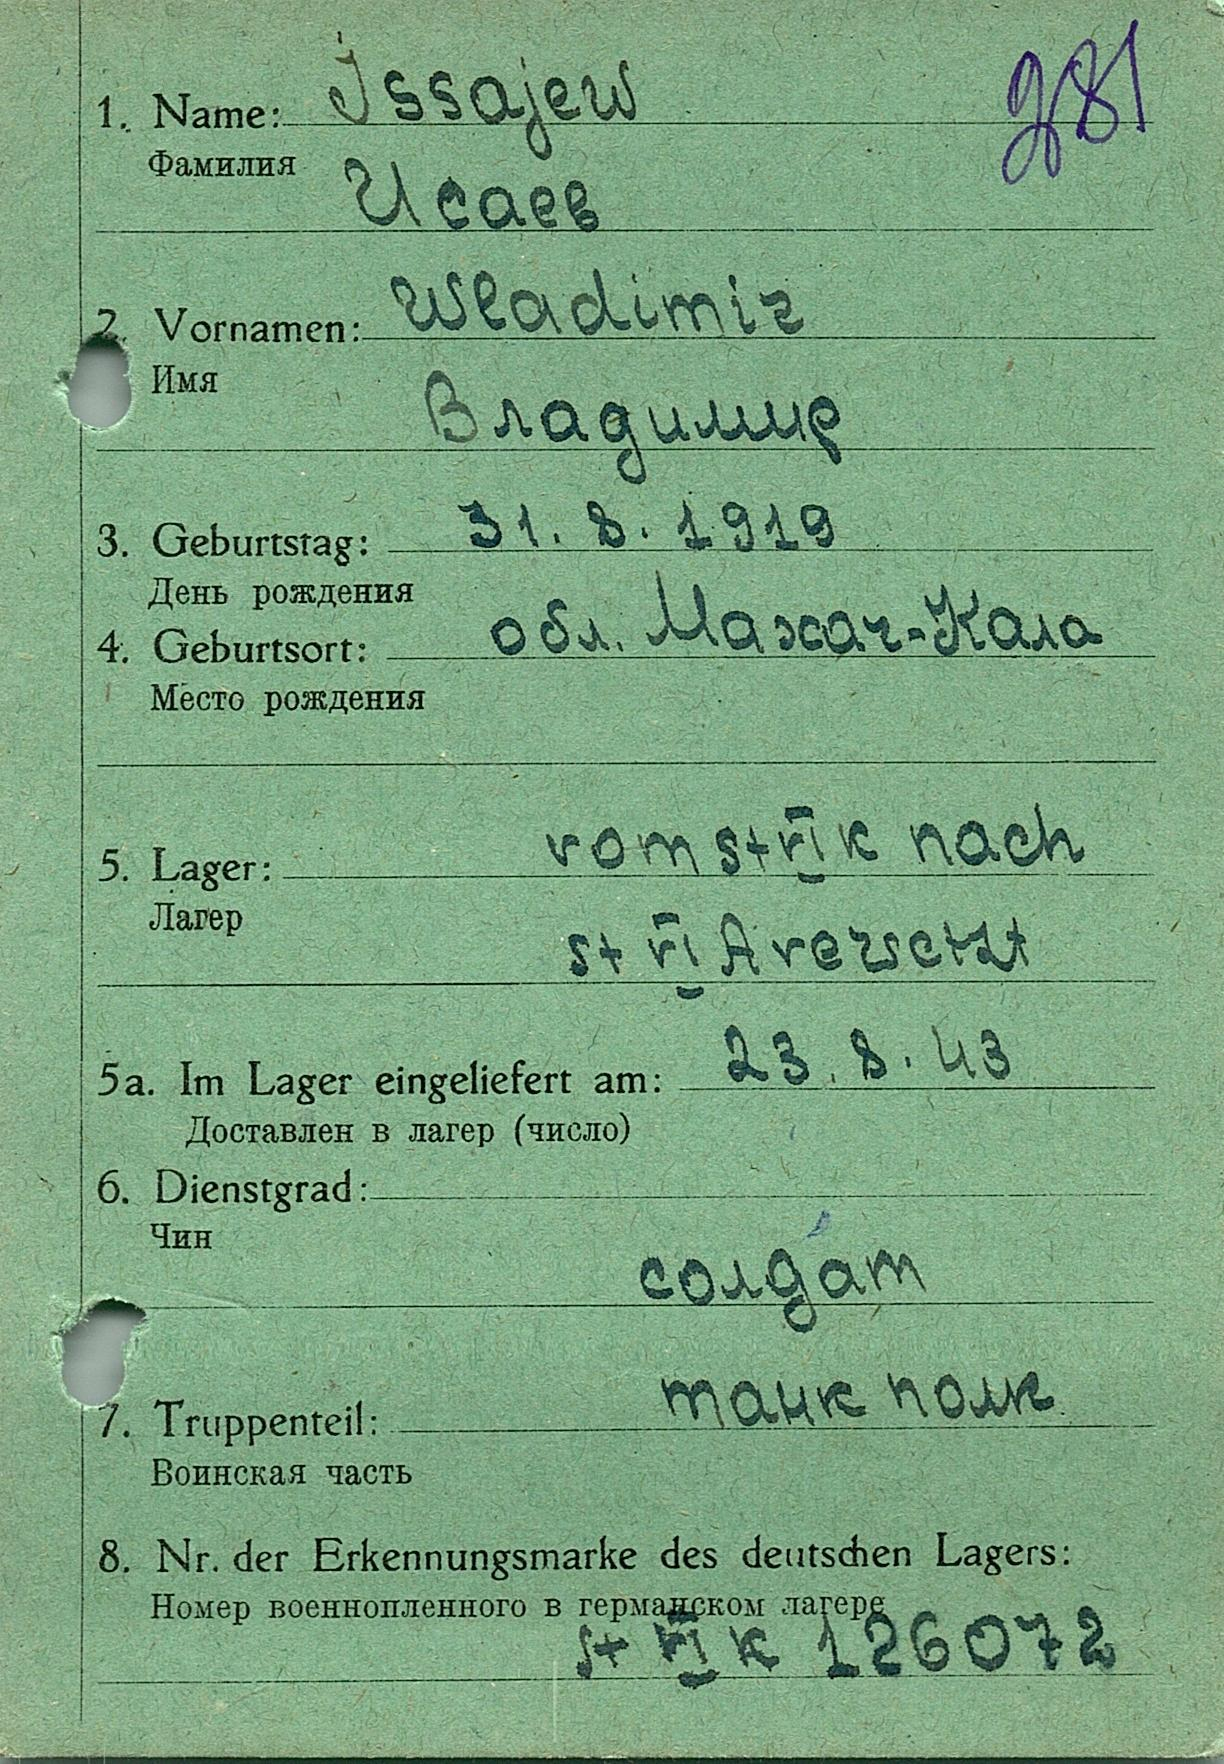 281
1. Name: Issajew
Фамилия
Исаев
2. Vornamen: Wladimir
Имя
Владимир
3. Geburtstag: 31. 8. 1919
День рождения
4. Geburtsort: обл. Махач-Кала
Место рождения
5. Lager: vom st VI K nach
Лагер
st VI A versetzt
5a. Im Lager eingeliefert am: 23. 8. 43
Доставлен в лагер (число)
6. Dienstgrad:
Чин
солдат
7. Truppenteil: танк полк
Воинская часть
8. Nr. der Erkennungsmarke des deutschen Lagers:
Номер военнопленного в германском лагере
st VI K 126072